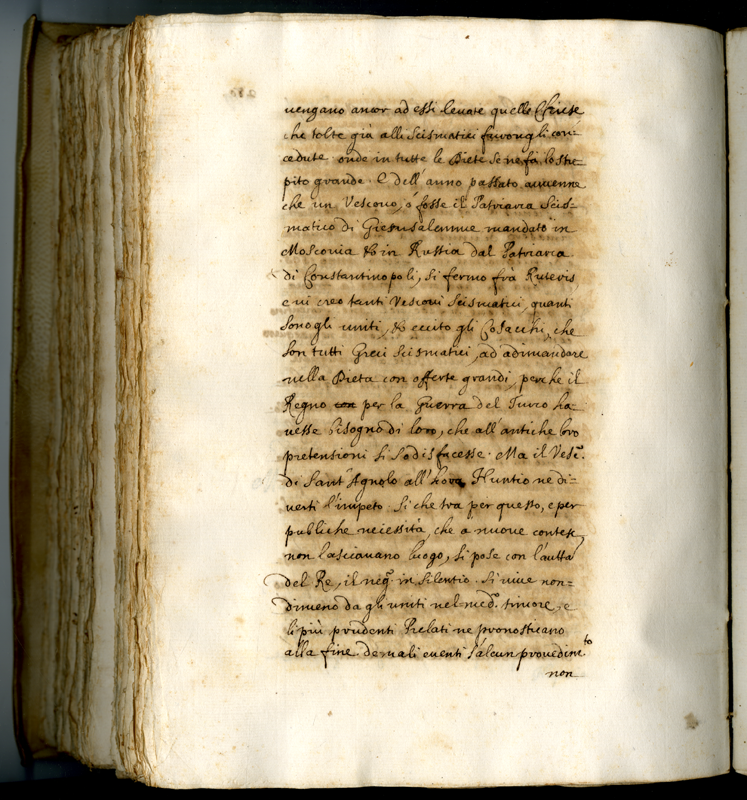 uengano ancor ad essi leuate quelle Chiese
che tolte già alli Scismatici furongli con=
cedute. onde in tutte le Diete se ne fà lo stre=
pito grande. E dell'anno passato auuenne
che un Vescouo, ò fosse il Patriarca Scis=
matico di Gierusalemme mandato in
Moscouia & in Russia dal Patriarca
di Constantinopoli, si fermo frà Ruteni,
e ui creo tanti Vescoui Scismatici, quanti
sono gli uniti, & eccito gli Cosacchi, che
son tutti Greci Scismatici, ad adimandare
nella Dieta con offerte grandi, perche il
Regno per la Guerra del Turco ha=
uesse bisogno di loro, che all'antiche loro
pretensioni si sodisfacesse. Ma il Vesc.
di Sant'Agnolo all'hora Nuntio ne di=
uerti l'impeto. Si che tra per questo, e per
publiche necessità, che à nuoue contese,
non lasciauano luogo, si pose con l'autta
del Re, il neg. in silentio. Si uiue non=
dimeno da gli uniti nel med. timore, e
li più prudenti Prelati ne pronosticano
alla fine de mali euenti s'alcun prouedimto
non